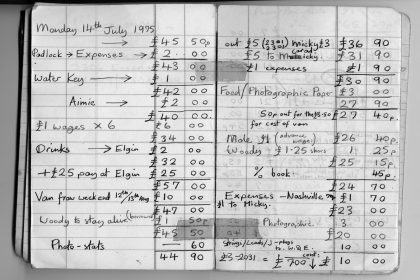 Monday 14th July 1975
→ £45 50p
Padlock → Expenses £2 . 00
£43 00
Water Key → £1 00
£42 00
Aimie → £2 00
£40 00
£1 wages × 6 £6 00
£34 00
Drinks → Elgin £2 00
£32 00
+£25 pay at Elgin £25 00
£57 00
Van from weekend £10 00
£47 00
Woody to stay alive £1 50p
£45 50
Photo-stats 60
44 90
out £5 Micky £3 £36 90
£5 to £31 90
£1 expenses £1 90
£30 90
Food/Photographic Paper £3 00
27 90
50p out for the £3.50 £27 40p.
for cost of van
Mole £1 (advance wages) £26 40p
Woody £1.25 1 25p
£25 15p
% book 45p.
£24 70
Expenses – Nashville £1 70
£1 to Micky. £23 00
Photographic. 3 00
£20 00
Strings/Leads/J-plugs
to W.G.E. 10 00
£3-2031 = £700 £10 00